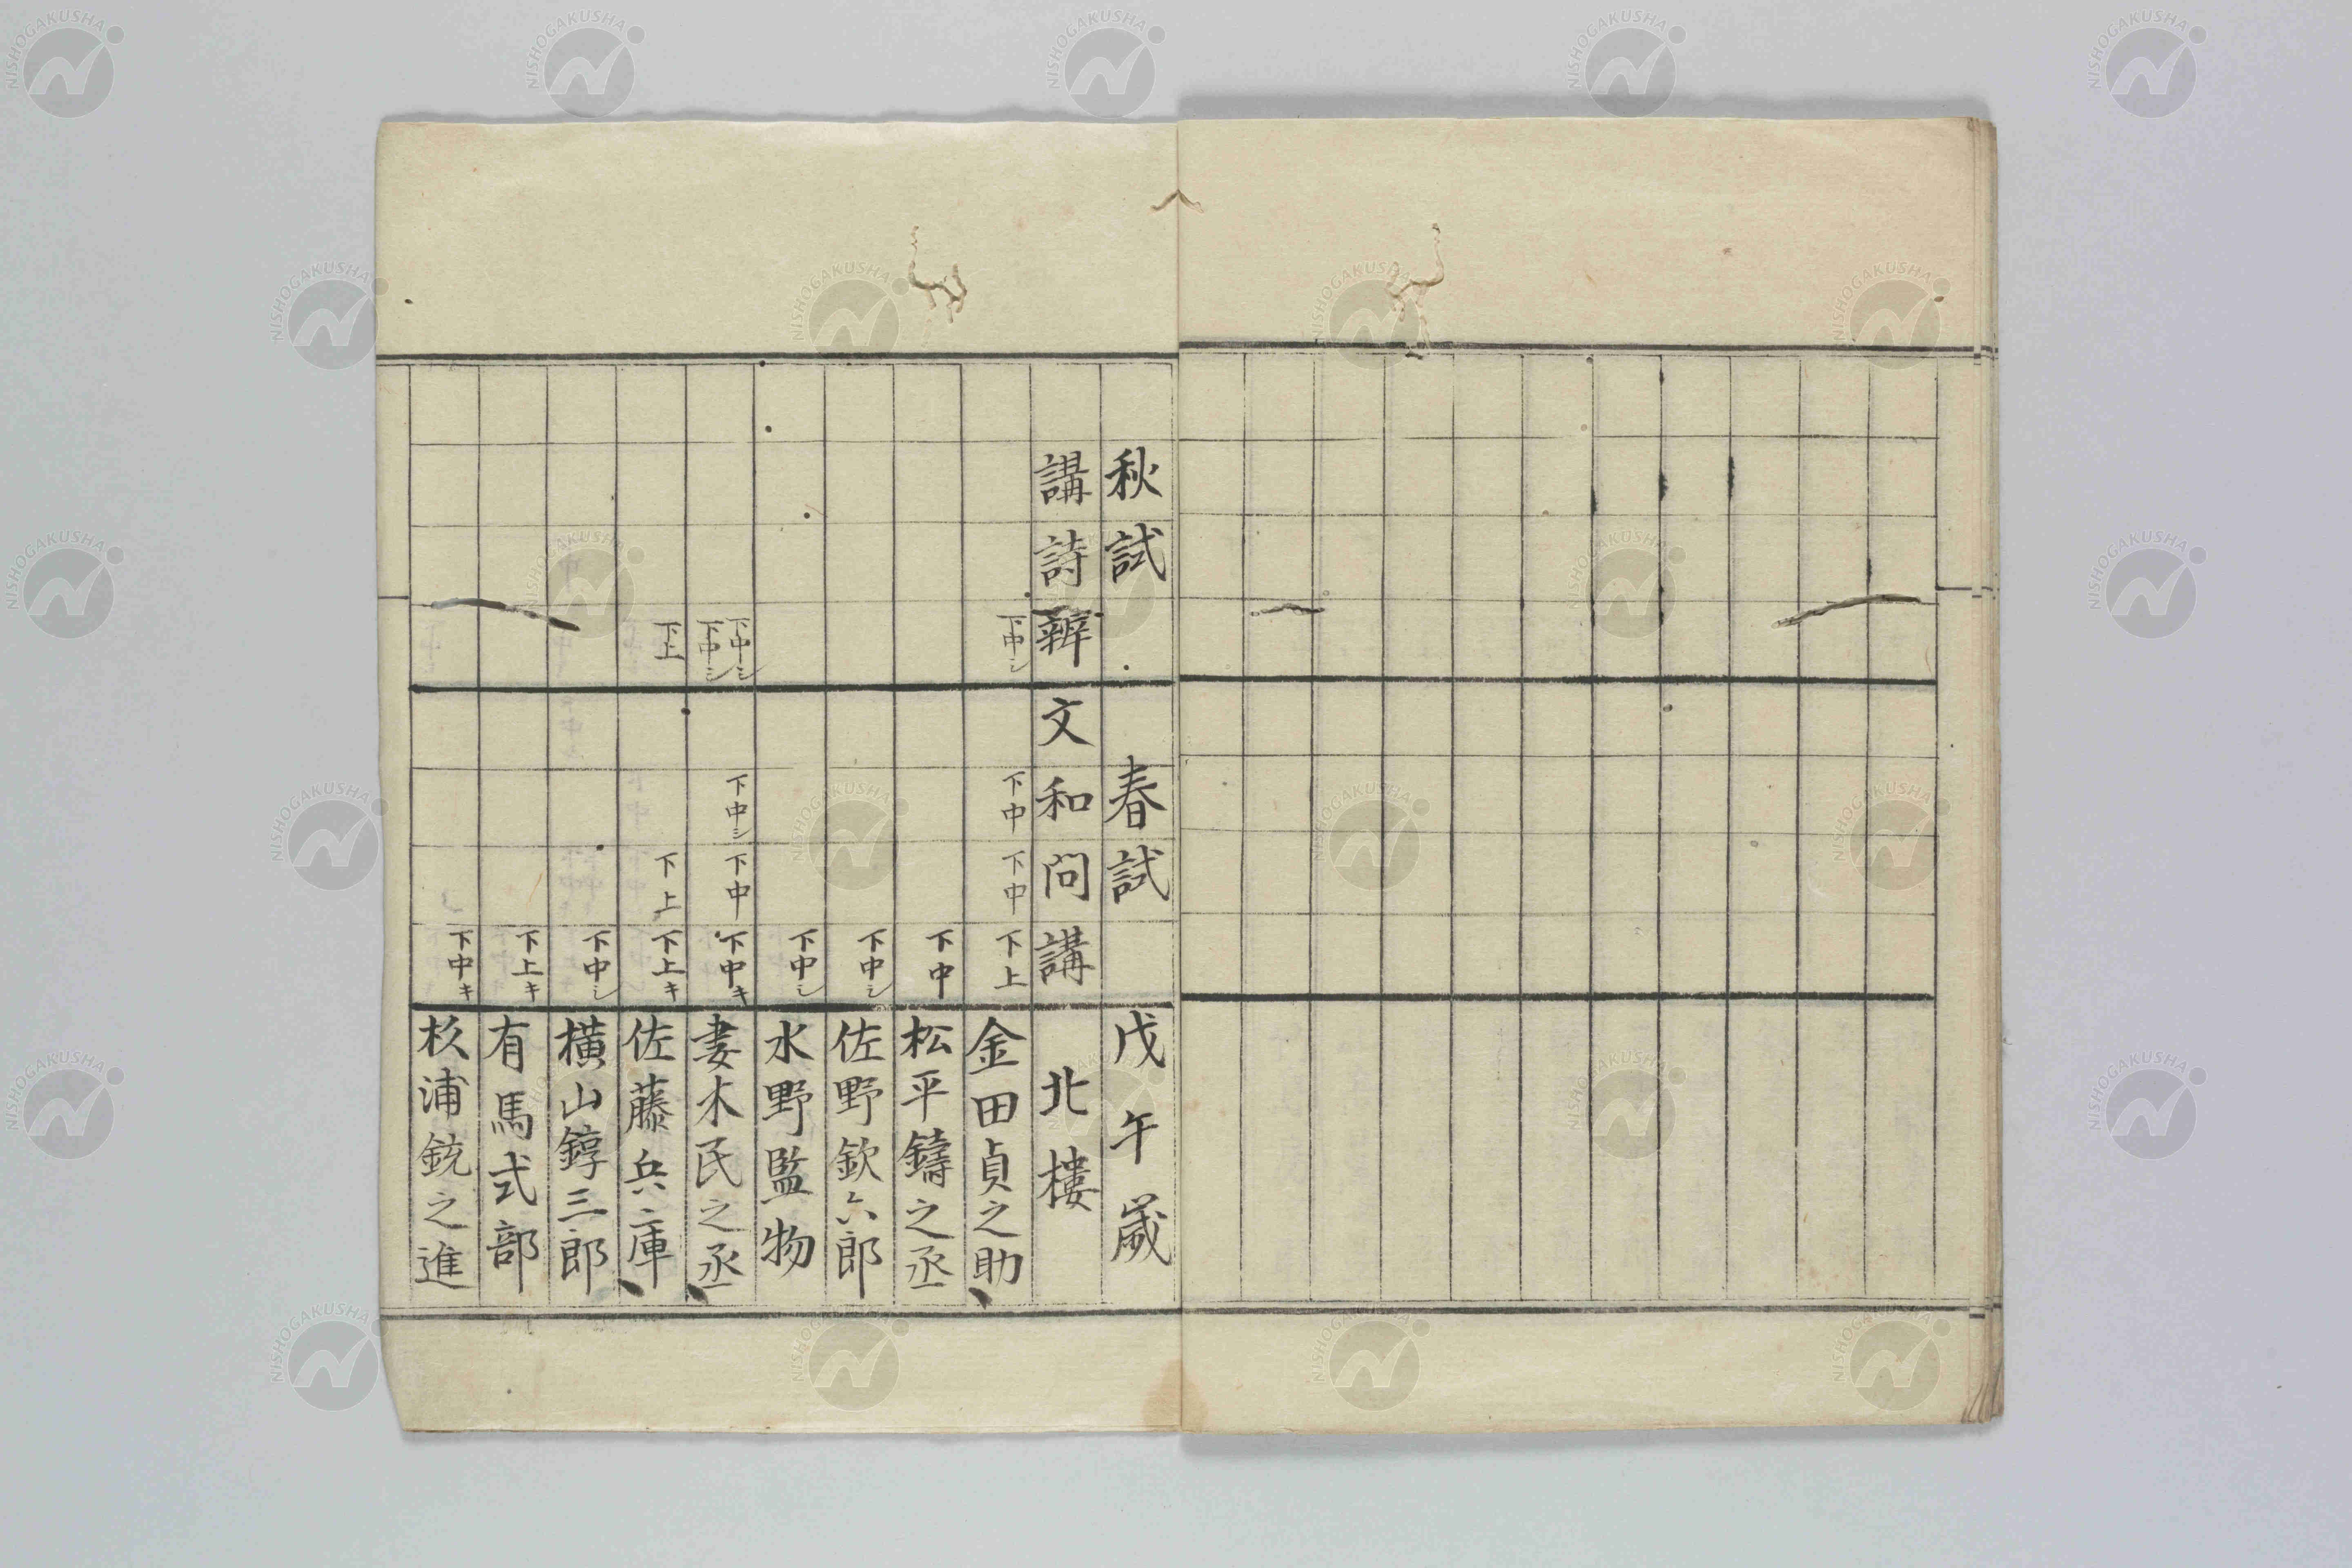 秋試　春試　戊午歳
講詩辨　文和問講　北樓
下中シ　下中　下中　下上　金田貞之助
下中　松平鑄之丞
下中シ　佐野欽六郎
下中シ　水野監物
下中シ　下中シ　下中シ　下中　下中キ　妻木民之丞
下上　下上　下上キ　佐藤兵庫
下中シ　横山錞三郎
下上キ　有馬式部
下中キ　杉浦銃之進
NISHOGAKUSHA